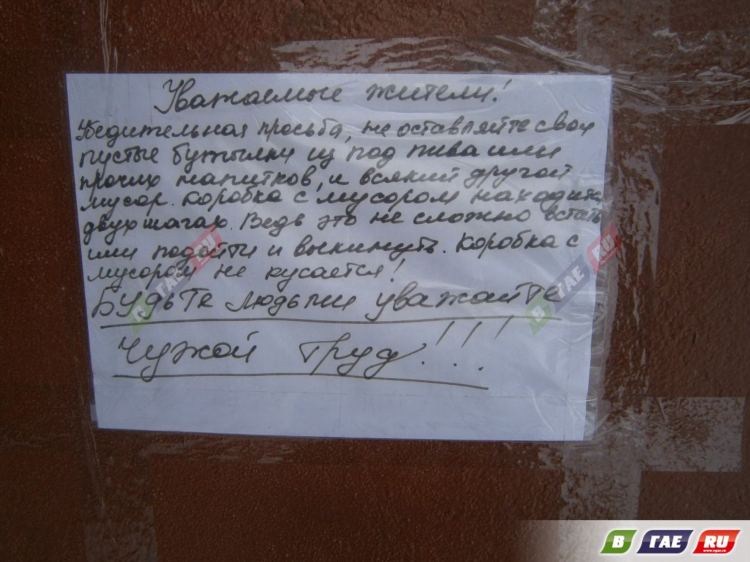 Уважаемые жители!
Убедительная просьба, не оставляйте свои
пустые бутылки из под пива или
прочих напитков, и всякий другой
мусор. Коробка с мусором находится
двух шагах. Ведь это не сложно встать
или подойти и выкинуть. Коробка с
мусором не кусается!
Будьте людьми уважайте
чужой труд!!!
В ГАЕ RU